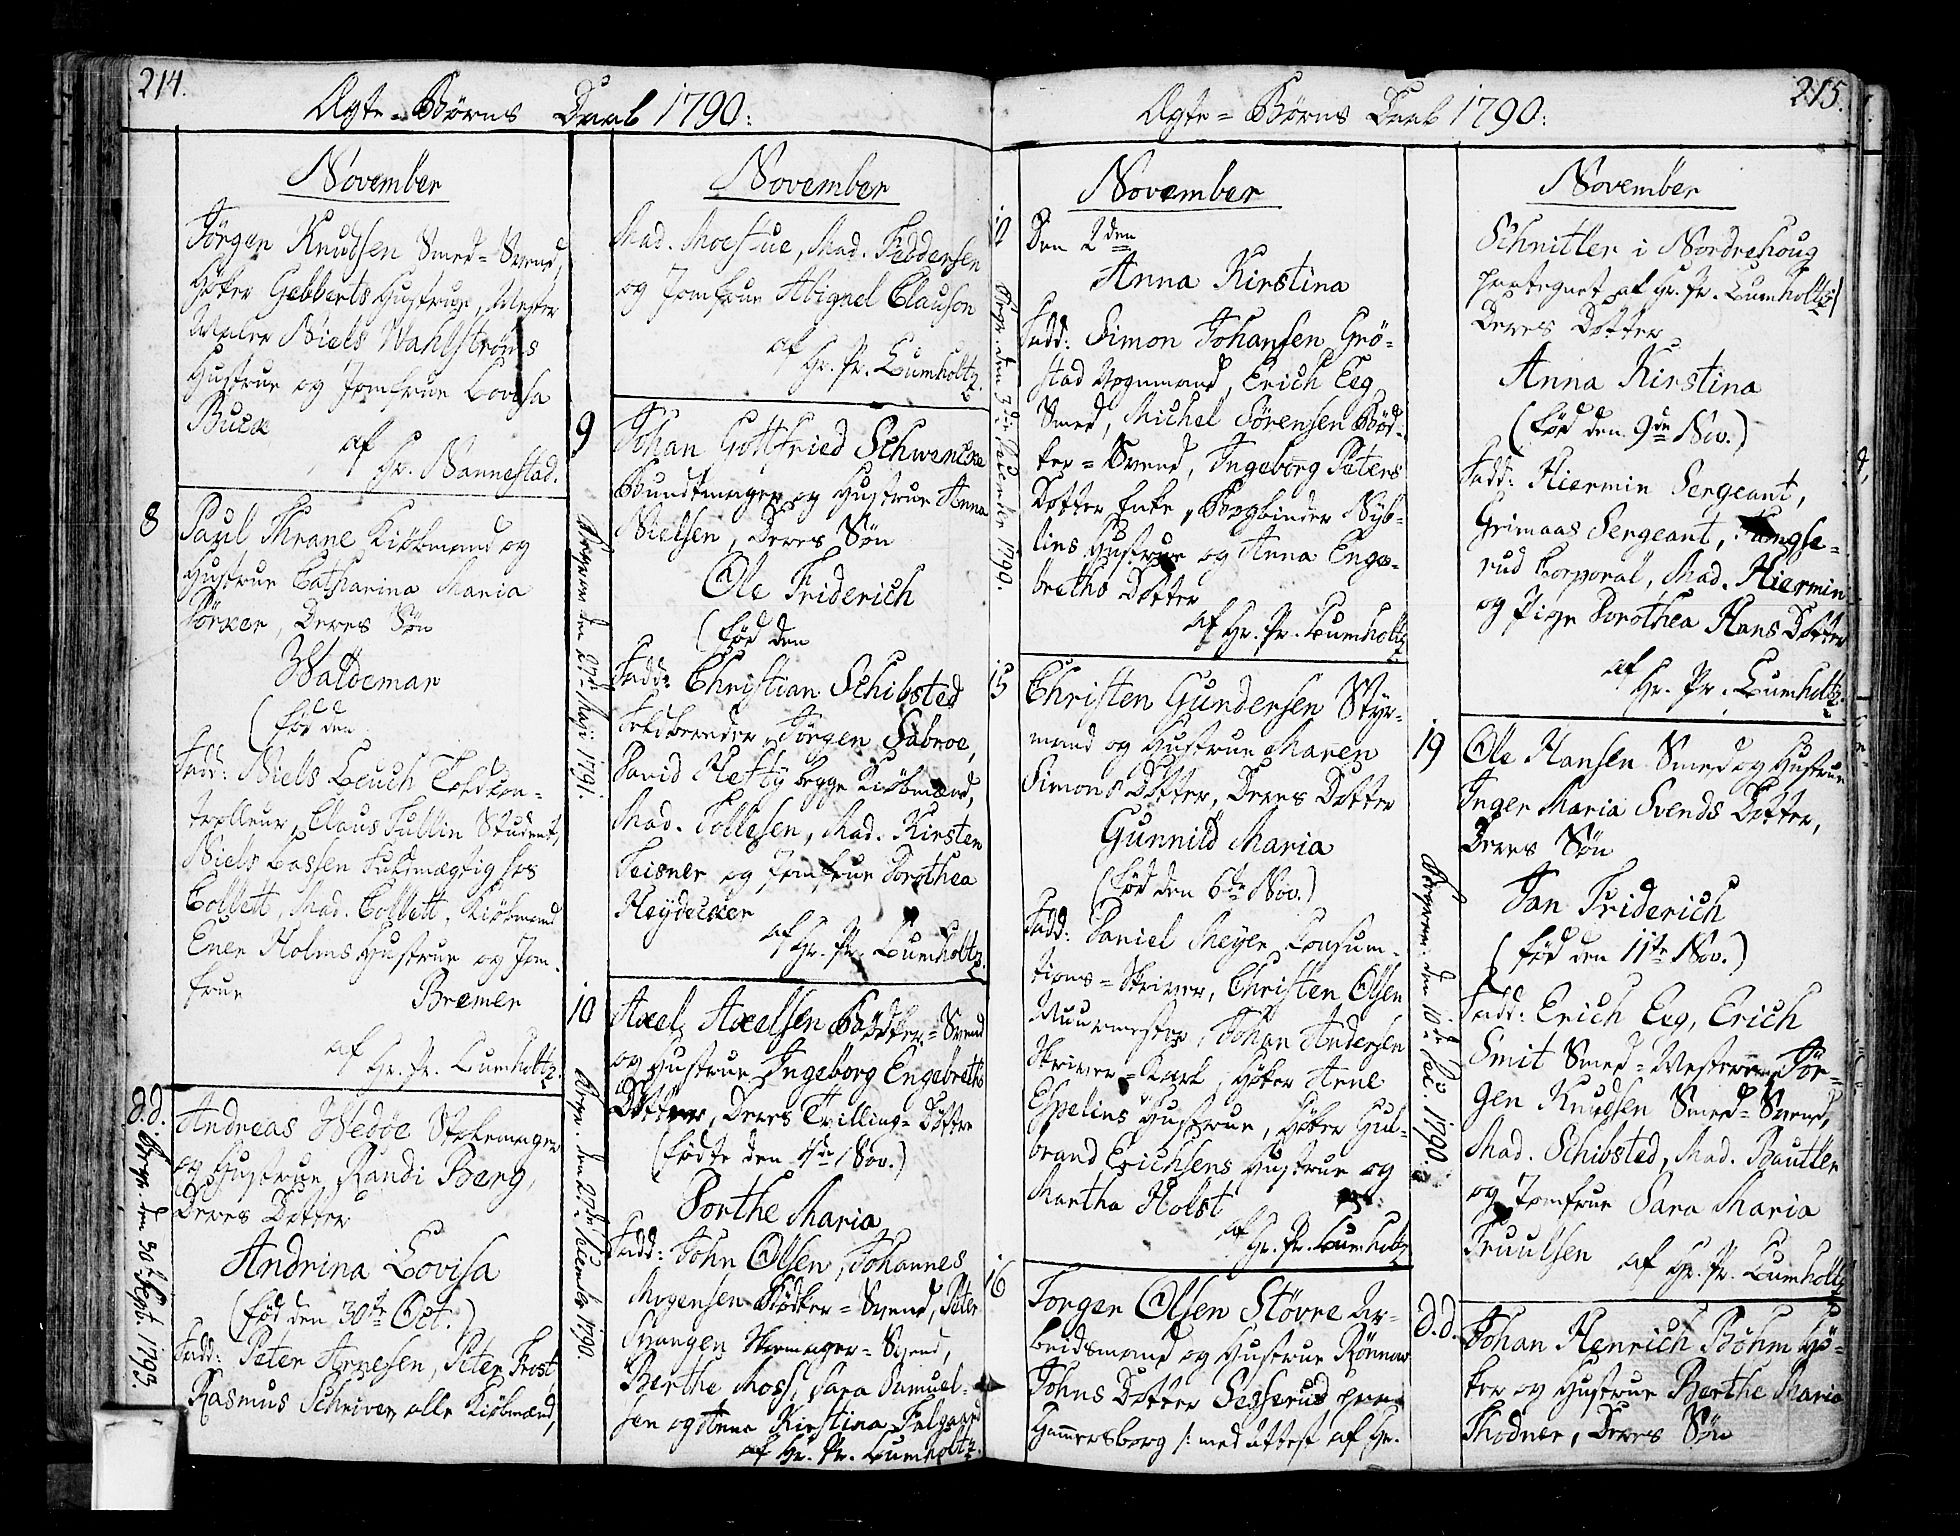 214.
Ægte=Børns Daab 1790:
November
Jörgen Knudsen Smed=Svend,
Höker Gebberts Hustrue, Mester
Maler Niels Wahlströms
Hustrue og Jomfrue Lovisa
Buck
af
Hr. Nannestad.
8
Paul Thrane Kiöbmand og
Hustrue Catharina Maria
Börker, Deres Sön
Waldemar
(fød den
Fadd: Niels Leuch Toldcon-
trolleur, Claus Tullin Student,
Niels Lassen Fuldmægtig hos
Collett, Mad. Collett, Kiöbmand
Ener Holms Hustrue og Jom-
frue Bremer
af
Hr. Pr. Lumholtz.
d.d.
Begr. den 30d Sept. 1793.
Andreas Wedöe Stolemager
og Hustrue Randi Berg,
Deres Datter
Andrina Lovisa
(fød den 30te Oct.)
Fadd: Peter Arnesen, Peter Frost
Rasmus Schriver alle Kiöbmænd,
November
Mad. Moestue, Mad. Feddersen
og Jomfrue Abigael Clauson
af
Hr. Pr. Lumholtz.
9
Begraven den 27de Maji 1791.
Johan Gottfried Schwencke
Bundtmager og Hustrue Anna
Nielsen, Deres Sön
Ole Friderich
(fød den
Fadd: Christian Schibsted
Jörgen Sabroe,
David Hefty begge Kiöbmænd,
Mad. Tollesen, Mad. Kirsten
Teisner og Jomfrue Dorothea
Heydecker
af
Hr. Pr. Lumholtz.
10
Begr. den 27de December 1790.
Axel Axelsen Bödker=Svend
og Hustrue Ingeborg Engebreths
Datter, Deres Tvilling=Döttre
(fødte den 4de Nov.)
Dorthe Maria
Fadd: John Olsen, Johannes
Mogensen Bödker=Svend, Peter
Svangen Skomager=Svend,
Berthe Moss, Sara Samuel-
sen og Anna Kirstina Falgaard
af Hr. Pr. Lumholtz.
215.
Ægte=Børns Daab 1790:
November
12
Begr. den 3die December 1790.
Den 2den
Anna Kirstina
Fadd: Simon Johansen Grö-
stad Vognmand, Erich Eeg
Smed, Michel Sörensen Böd-
ker=Svend, Ingeborg Peters
Datter Enke, Bogbinder Nÿb-
lins Hustrue og Anna Enge-
breths Datter
af Hr. Pr. Lumholtz.
15
Christen Gundersen Styr-
mand og Hustrue Maren
Simons Datter, Deres Datter
Gunnild Maria
(fød den 6te Nov.)
Fadd: Daniel Meyer Consum-
tions=Skriver, Christen Olsen
Muurmester, Johan Andersen
Skriver=Karl, Höker Arne
Espelins Hustrue, Höker Gul-
brand Erichsens Hustrue og
Martha Holst
af
Hr. Pr. Lumholtz.
16
Torger Olsen Stövre Ar-
beidsmand og Hustrue Rönnov
Johns Datter Sesserud paa
Hammersborg /: med Attest af Hr.
November
Schnitler i Nordrehoug
paategnet af Hr. Pr. Lumholtz:/
Deres Datter
Anna Kirstina
(fød den 9de Nov.)
Fadd: Hiermin Sergeant,
Grimaas Sergeant, Tingse-
rud Corporal, Mad. Hiermin
og Pige Dorothea Hans Datter
af
Hr. Pr. Lumholtz.
19
Begraven den 10de Dec. 1790.
Ole Hansen Smed og Hustrue
Inger Maria Svends Datter,
Deres Sön
Jan Friderich
(fød den 11te Nov.)
Fadd: Erich Eeg, Erich
Smit Smed=Mestere, Jör-
gen Knudsen Smed=Svend,
Mad. Schibsted, Mad. Bautler
og Jomfrue Sara Maria
Truulsen af Hr. Pr. Lumholtz
d.d.
Johan Henrich Böhm Hö-
ker og Hustrue Berthe Maria
Thodner, Deres Sön